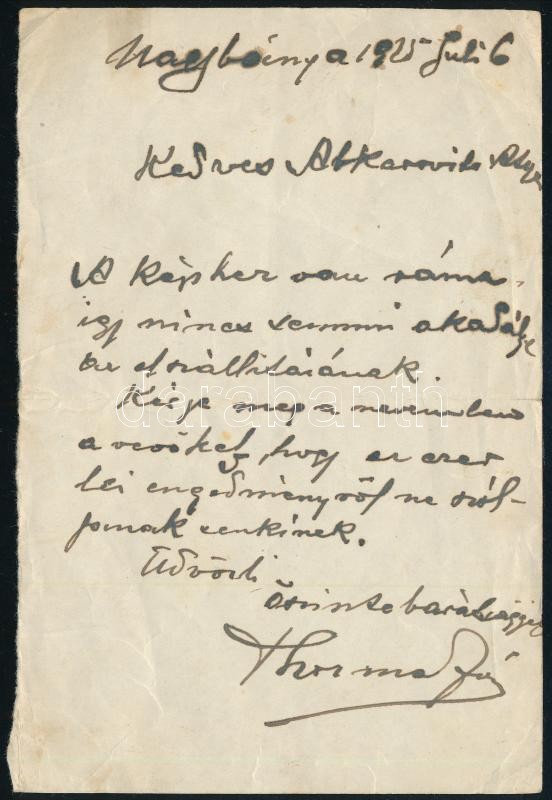 Nagybánya 1925 Juli 6
Kedves Abkarovits
A képhez van ráma,
igy nincs semmi akadálya
az elszállitásának.
Kérje meg a nevemben
a vevőket, hogy az ezer
lei engedményről ne szól-
janak senkinek.
Üdvözli
őszinte barátsággal
Thorma Já
darabanth